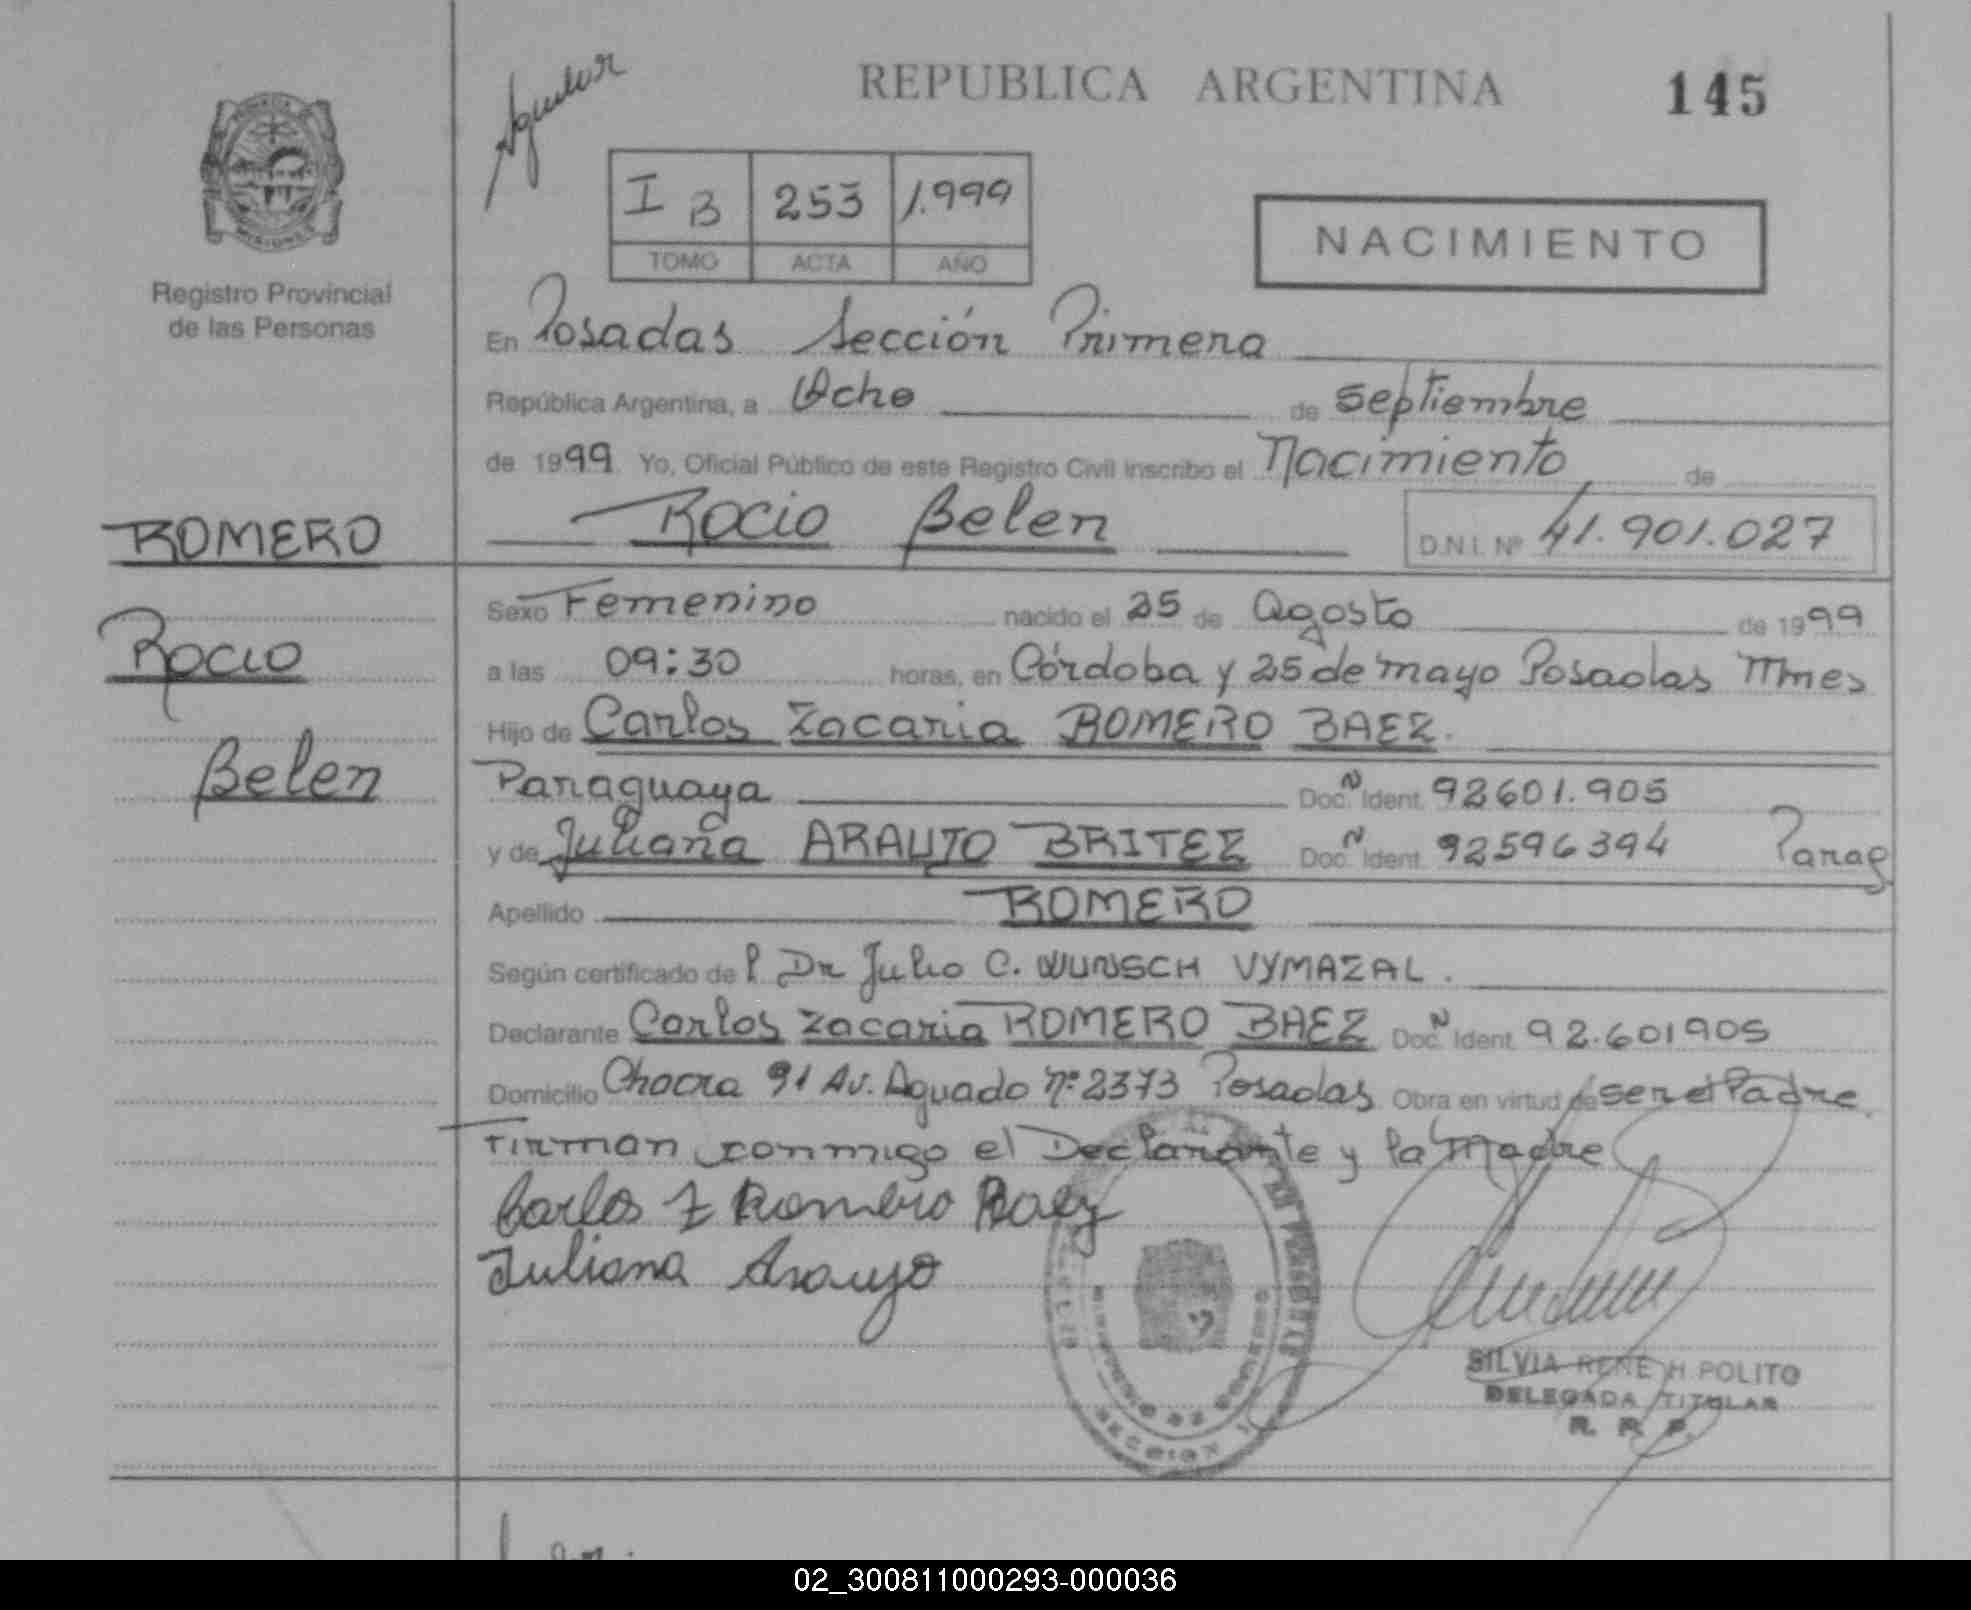 Aguilar
REPUBLICA ARGENTINA
145
MISIONES
I B 253 1.999
TOMO ACTA AÑO
NACIMIENTO
Registro Provincial
de las Personas
En Posadas Sección Primera
República Argentina, a Ocho de septiembre
de 1999 Yo, Oficial Público de este Registro Civil inscribo el Nacimiento de
Rocio Belen D.N.I. Nº 41.901.027
ROMERO
Rocio
Belen
Sexo Femenino nacido el 25 de Agosto de 1999
a las 09:30 horas, en Córdoba y 25 de mayo Posadas Mnes
Hijo de Carlos Zacaria ROMERO BAEZ.
Paraguaya Doc. N Ident. 92601.905
y de Juliana ARAUJO BRITEZ Doc. N Ident. 92596394 Parag
Apellido ROMERO
Según certificado de P. Dr Julio C. WUNSCH VYMAZAL.
Declarante Carlos Zacaria ROMERO BAEZ Doc. N Ident. 92.601905
Domicilio Chacra 91 Av. Aguado nº 2373 Posadas Obra en virtud de ser el Padre
Firman conmigo el Declarante y la Madre
Carlos Z Romero Baez
Juliana Araujo
SECCION 1
SILVIA RENE H POLITO
DELEGADA TITULAR
R. R. P.
02_300811000293-000036